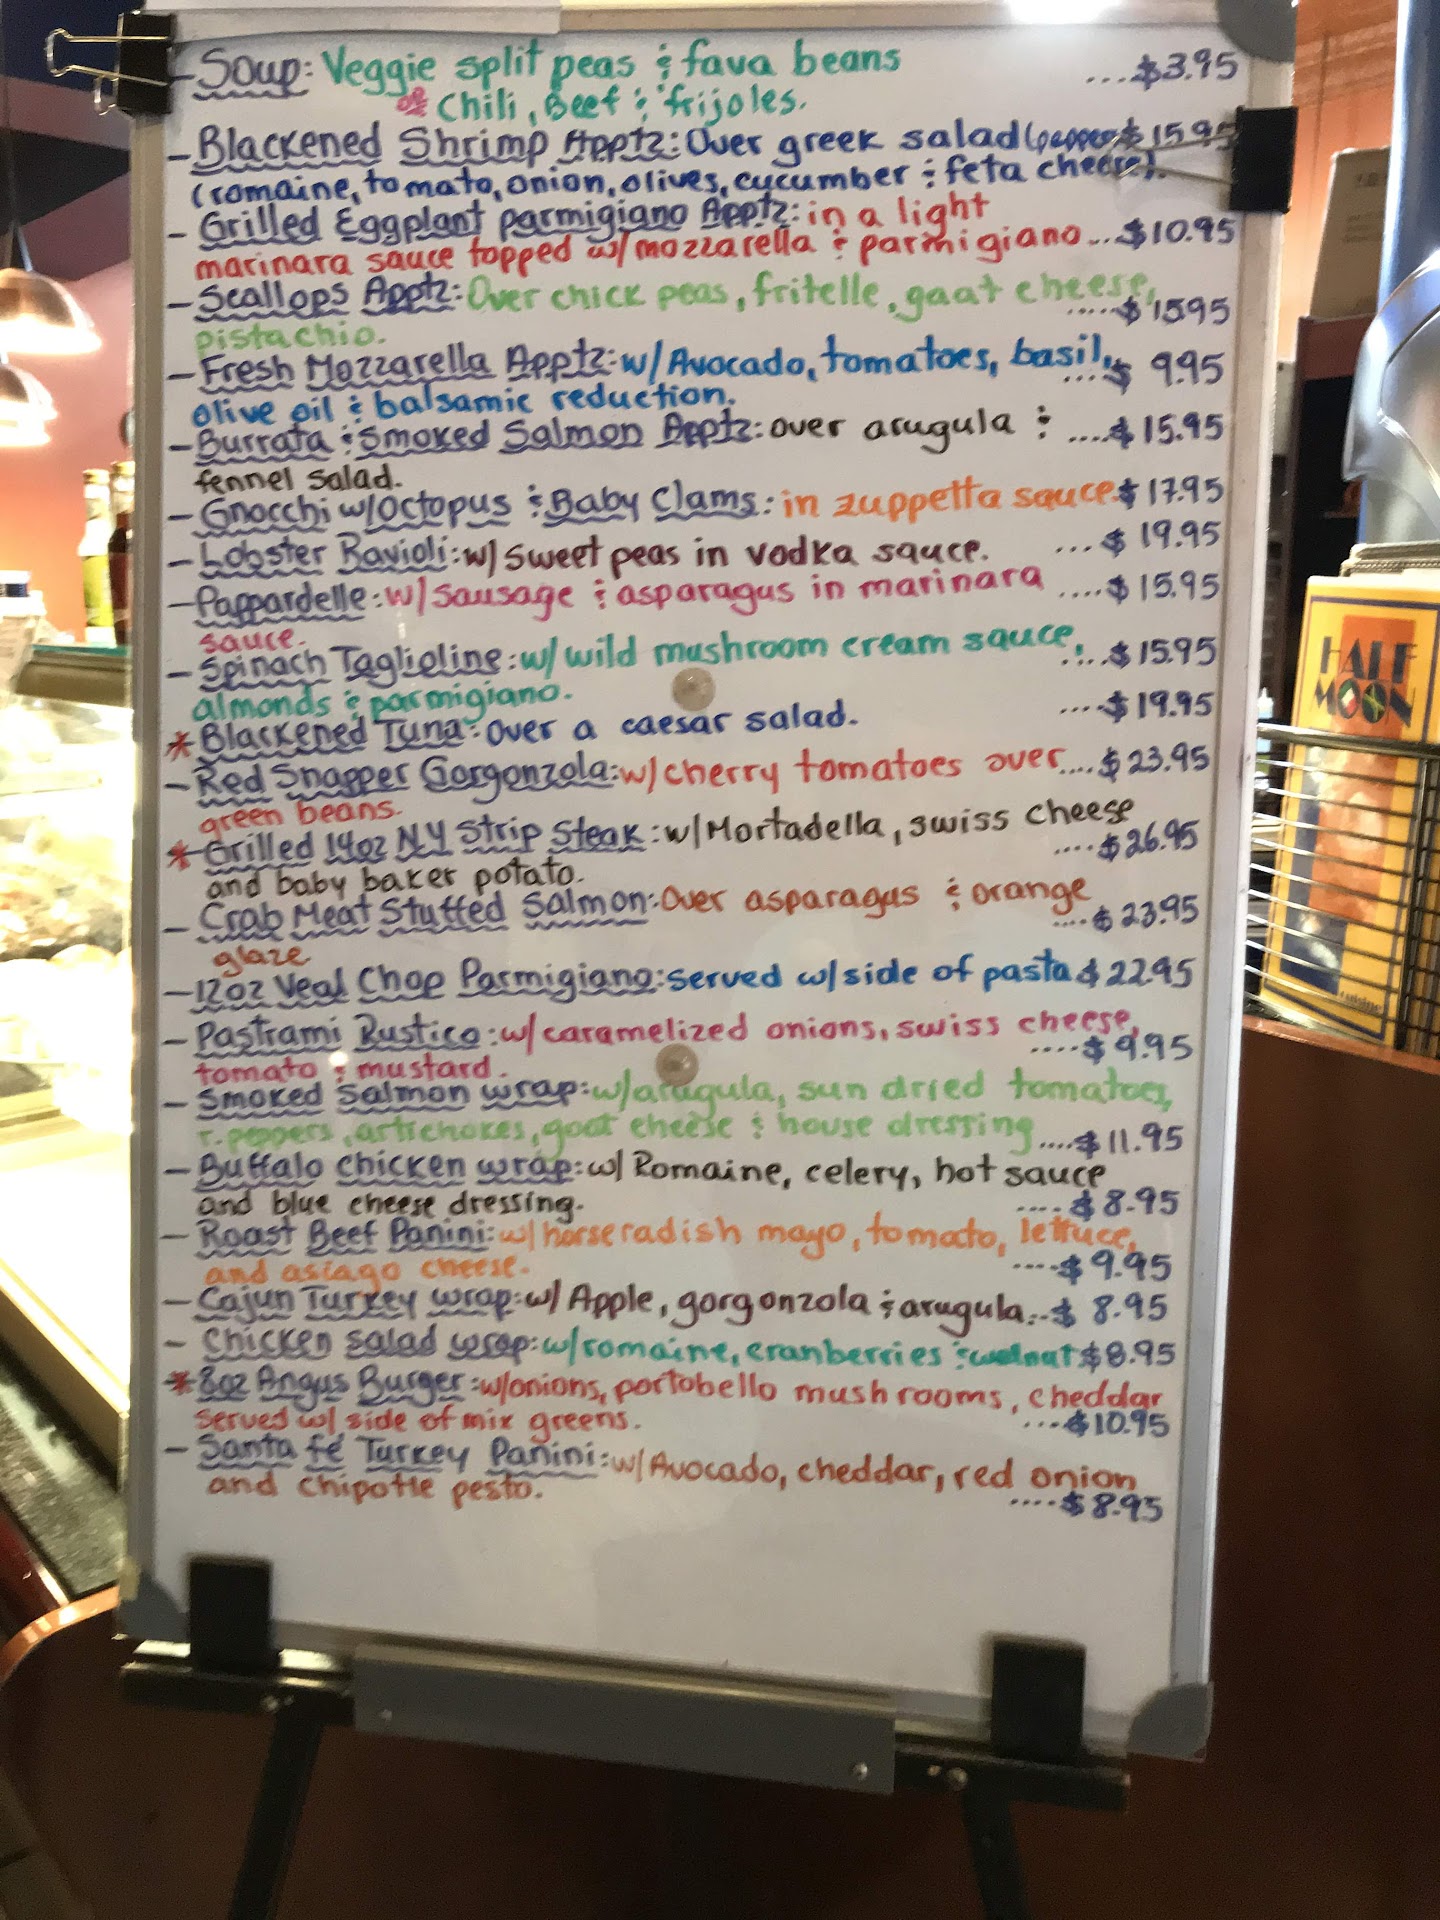 - Soup: Veggie split peas & fava beans ...$3.95
or Chili, Beef & frijoles.
- Blackened Shrimp Apptz: Over greek salad (pepper $15.95
(romaine, tomato, onion, olives, cucumber & feta cheese).
- Grilled Eggplant parmigiano Apptz: in a light
marinara sauce topped w/mozzarella & parmigiano...$10.95
- Scallops Apptz: Over chick peas, fritelle, goat cheese,
pistachio. .....$15.95
- Fresh Mozzarella Apptz: w/Avocado, tomatoes, basil, ....$ 9.95
olive oil & balsamic reduction.
- Burrata & Smoked Salmon Apptz: over arugula & ....$15.95
fennel salad.
- Gnocchi w/Octopus & Baby Clams: in zuppetta sauce.$17.95
- Lobster Ravioli: w/ Sweet peas in vodka sauce. ...$19.95
- Pappardelle: w/ Sausage & asparagus in marinara ....$15.95
sauce.
- Spinach Taglioline: w/ wild mushroom cream sauce, ....$15.95
almonds & parmigiano.
* Blackened Tuna: Over a caesar salad. ....$19.95
- Red Snapper Gorgonzola: w/cherry tomatoes over....$23.95
green beans.
* Grilled 14oz NY Strip Steak: w/Mortadella, swiss cheese
and baby baker potato. ....$26.95
- Crab Meat Stutted Salmon: Over asparagus & orange ....$23.95
glaze
- 12oz Veal Chop Parmigiano: Served w/side of pasta $22.95
- Pastrami Rustico: w/caramelized onions, swiss cheese,
tomato & mustard. ....$9.95
- Smoked Salmon wrap: w/arugula, sun dried tomatoes,
r.peppers, artichokes, goat cheese & house dressing....$11.95
- Buffalo chicken wrap: w/ Romaine, celery, hot sauce
and blue cheese dressing. ....$8.95
- Roast Beef Panini: w/ horseradish mayo, tomato, lettuce,
and asiago cheese. ....$9.95
- Cajun Turkey wrap: w/ Apple, gorgonzola & arugula..$ 8.95
- Chicken salad wrap: w/romaine, cranberries & walnut $8.95
* 8oz Angus Burger: w/onions, portobello mushrooms, cheddar
served w/ side of mix greens. ....$10.95
- Santa fé Turkey Panini: w/Avocado, cheddar, red onion
and chipotle pesto. ....$8.95
HALF
MOON
cuisine